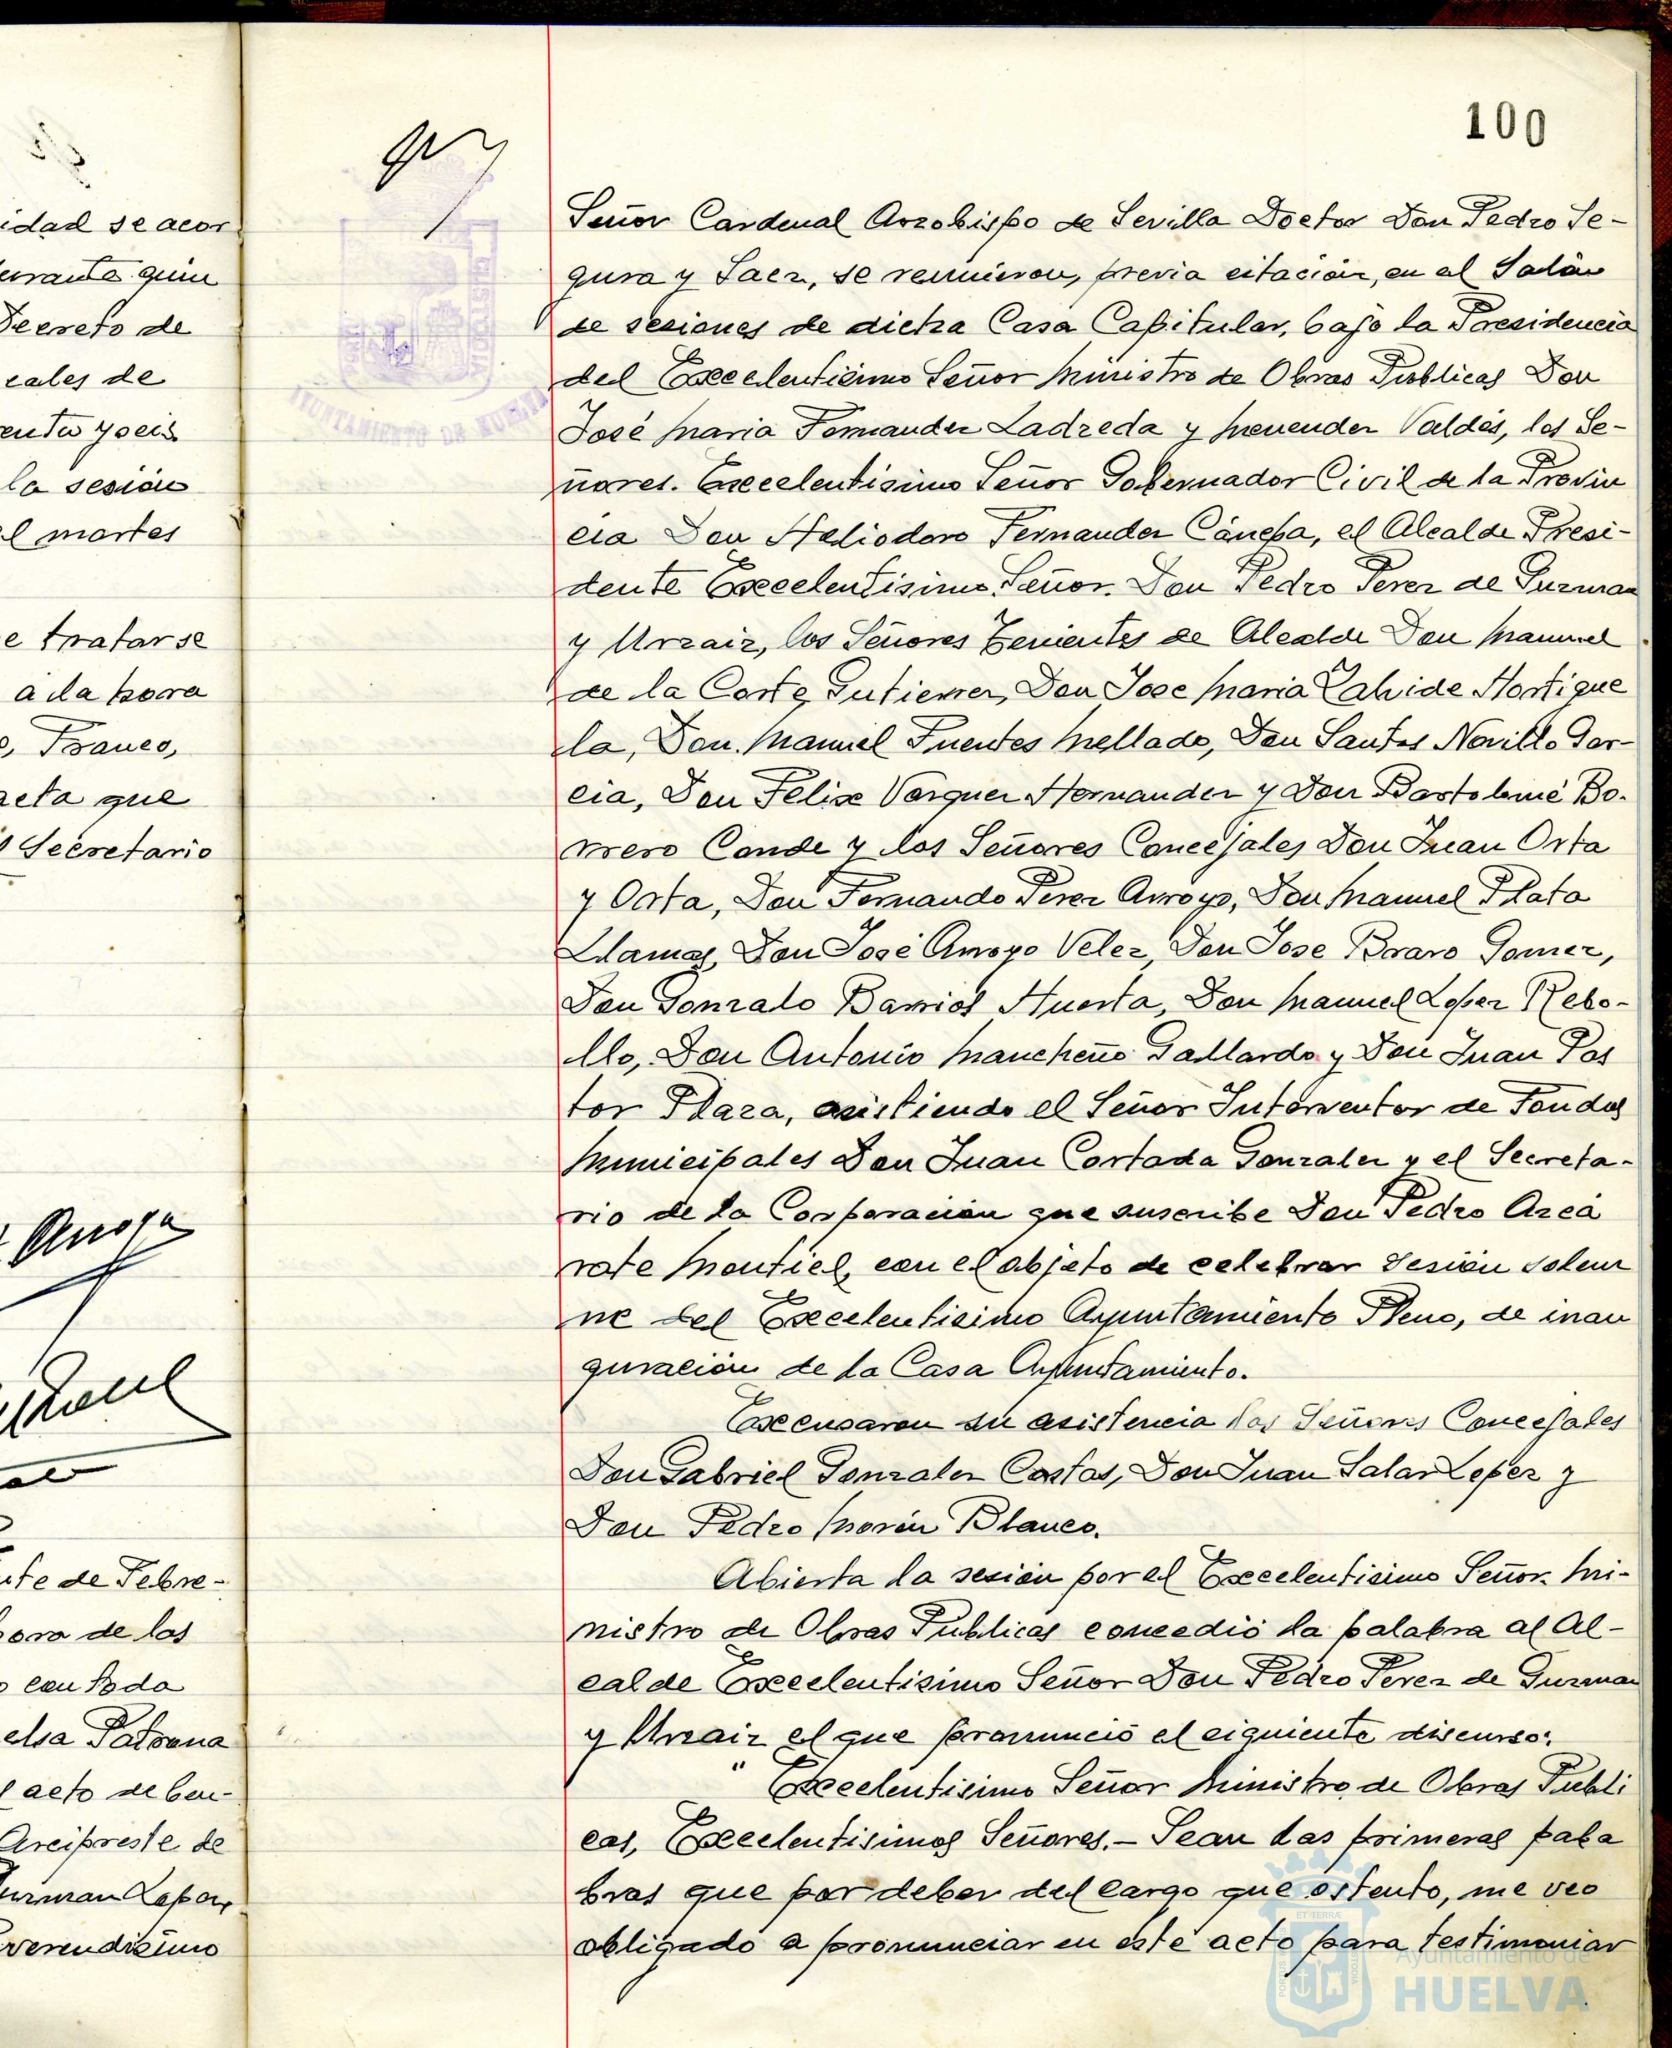 idad se acor
Decreto de
cales de
la sesión
el martes
e tratarse
a la hora
Franco,
acta que
Secretario
Arroyo
te de Febre-
hora de los
con toda
Patrona
l acto de ben-
Arcipreste de
100
Señor Cardenal Arzobispo de Sevilla Doctor Don Pedro Se-
gura y Saez, se reunieron, previa citación, en el Salón
de sesiones de dicha Casa Capitular, bajo la Presidencia
del Excelentisimo Señor Ministro de Obras Publicas Don
José Maria Fernandez Ladreda y Menendez Valdés, los Se-
ñores. Excelentisimo Señor Gobernador Civil de la Provin
cia Don Heliodoro Fernandez Cánepa, el Alcalde Presi-
dente Excelentisimo Señor. Don Pedro Perez de Guzman
y Urzaiz, los Señores Tenientes de Alcalde Don Manuel
de la Corte Gutierrez, Don Jose Maria Lahide Hortigue
la, Don Manuel Fuentes Mellado, Don Santos Novillo Gar-
cia, Don Felix Vazquez Hernandez y Don Bartolomé Bo-
rrero Conde y los Señores Concejales Don Juan Orta
y Orta, Don Fernando Perez Arroyo, Don Manuel Plata
Llamas, Don José Arroyo Velez, Don Jose Bravo Gomez,
Don Gonzalo Barrios Huerta, Don Manuel Lopez Rebo-
llo, Don Antonio Mancheño Gallardo y Don Juan Pas
tor Plaza, asistiendo el Señor Interventor de Fondos
Municipales Don Juan Cortada Gonzalez y el Secreta-
rio de la Corporación que suscribe Don Pedro Azcá
rate Montiel, con el objeto de celebrar Sesión solem
ne del Excelentisimo Ayuntamiento Pleno, de inau
guración de la Casa Ayuntamiento.
Excusaron su asistencia los Señores Concejales
Don Gabriel Gonzalez Costas, Don Juan Salas Lopez y
Don Pedro Morón Blanco.
Abierta la sesión por el Excelentisimo Señor. Mi-
nistro de Obras Publicas concedió la palabra al Al-
calde Excelentisimo Señor Don Pedro Perez de Guzman
y Urzaiz el que pronunció el siguiente discurso:
" Excelentisimo Señor Ministro, de Obras Publi
cas, Excelentisimos Señores.- Sean las primeras pala
bras que por deber del cargo que ostento, me veo
obligado a pronunciar en este acto para testimoniar
AYUNTAMIENTO DE HUELVA
Ayuntamiento de
HUELVA